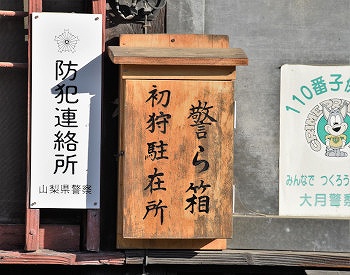 防犯連絡所
山梨県警察
警ら箱
初狩駐在所
110番子
みんなで つくろう
大月警察